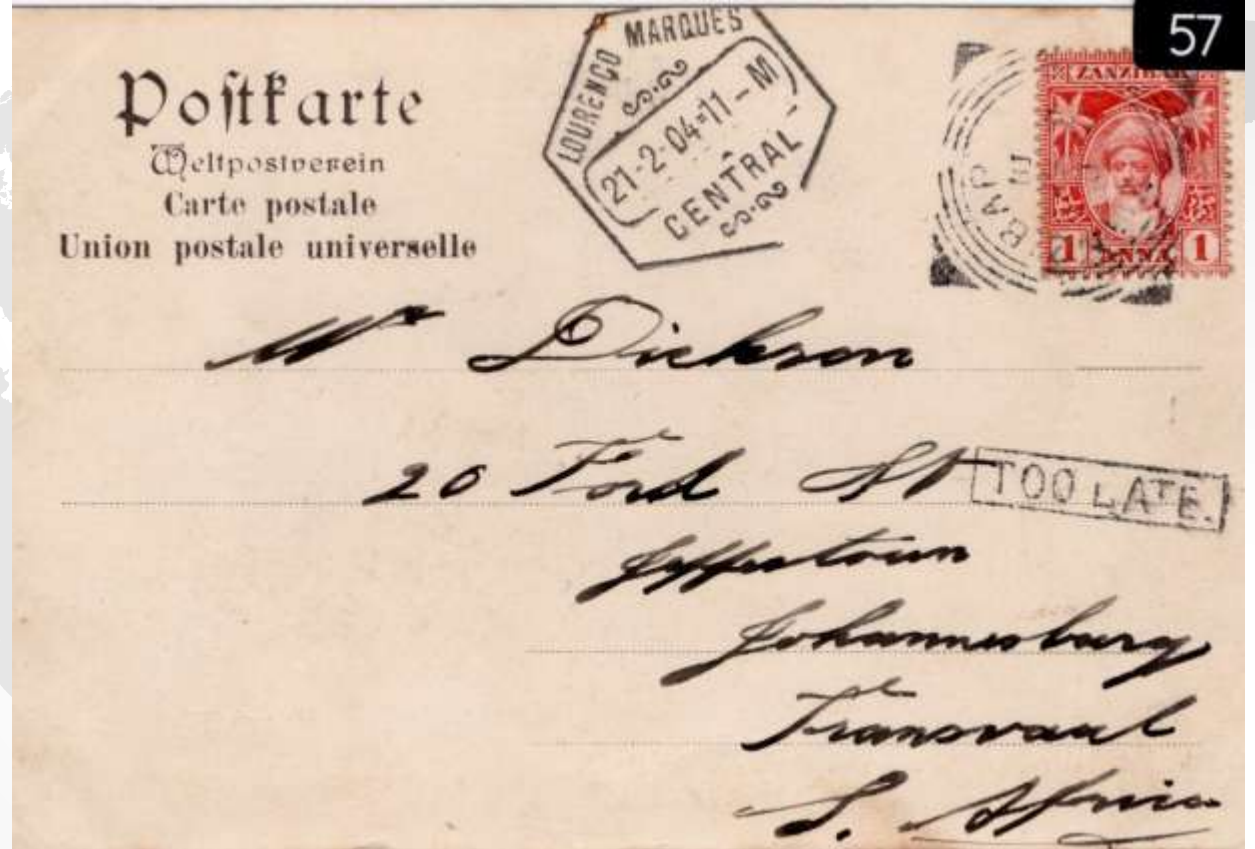 57
Poſtkarte
Weltpostverein
Carte postale
Union postale universelle
LOURENÇO MARQUES
21-2-04=11-M
CENTRAL
ZANZIBAR
1 ANNA 1
Mr Dickson
20 Ford St
TOO LATE.
Jeppestown
Johannesburg
Transvaal
S. Africa